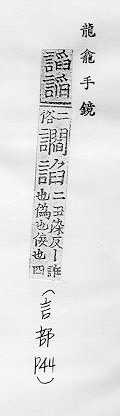 龍龕手鏡
謟謟二俗讇諂二丑染反丨誑也偽也佞也四
(言部 P44)